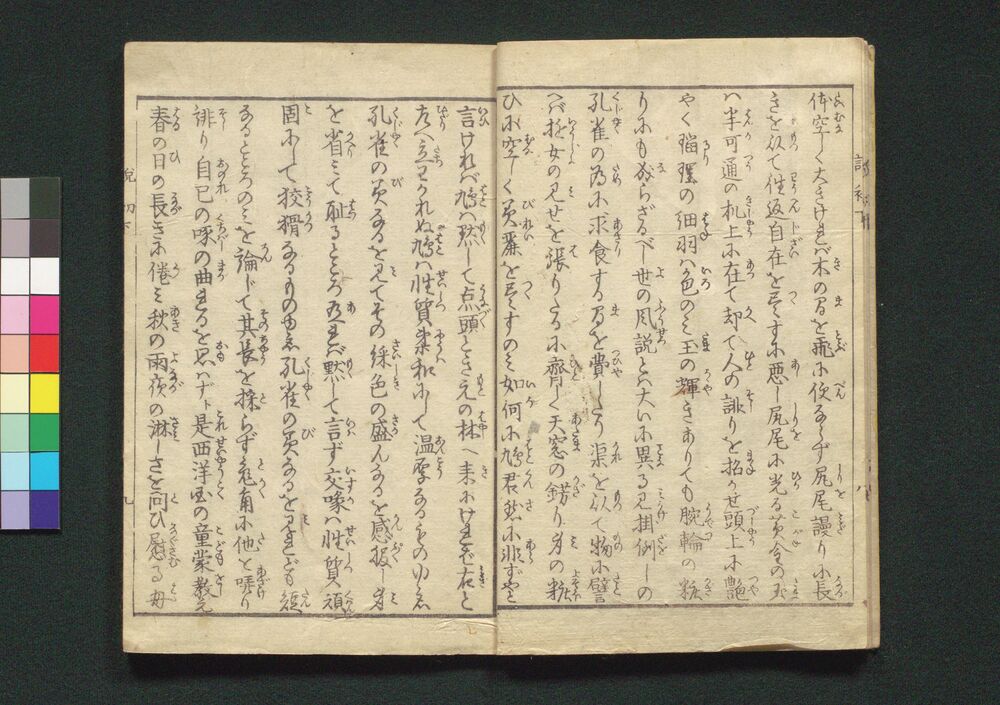 体空しく大きければ木の間を飛に便ならず尻尾謾りに長
きを以て往返自在を尽さず悪し尻尾に光る黄金の玉
ハ半可通の机上に在て却て人の誹りを招かせ頭上に艶
やく瑠璃の細羽ハ色のミ王の輝きありても腕輪の粧
りにも成らざるべし世の風説とハ大いに異る見掛倒しの
孔雀の為に求食する間を費したり渠を以て物に譬
へバ遊女の見せを張りたるに齊しく天窓の錺り身の粧
ひに空しく美麗を尽すのミ如何に鳩君然に非ずやと
言けれバ鳩ハ黙して点頭ときえの林へ来にければ右と
左へ立わかれぬ鳩ハ性質柔和にして温厚なるものゆゑ
孔雀の美なるを見てその綵色の盛んなるを感服し身
を省ミて耻るところあれバ黙して言ず交喙ハ性質頑
固にして狡猾なるもの由ゑ孔雀の美なるを見れども短
なるところのミを論じて其長を採らず兎角に他を嘲り
誹り自己の啄の曲れるを思ハず是西洋国の童蒙教え
春の日の長きに倦ミ秋の雨夜の淋しさを問ひ慰る毎